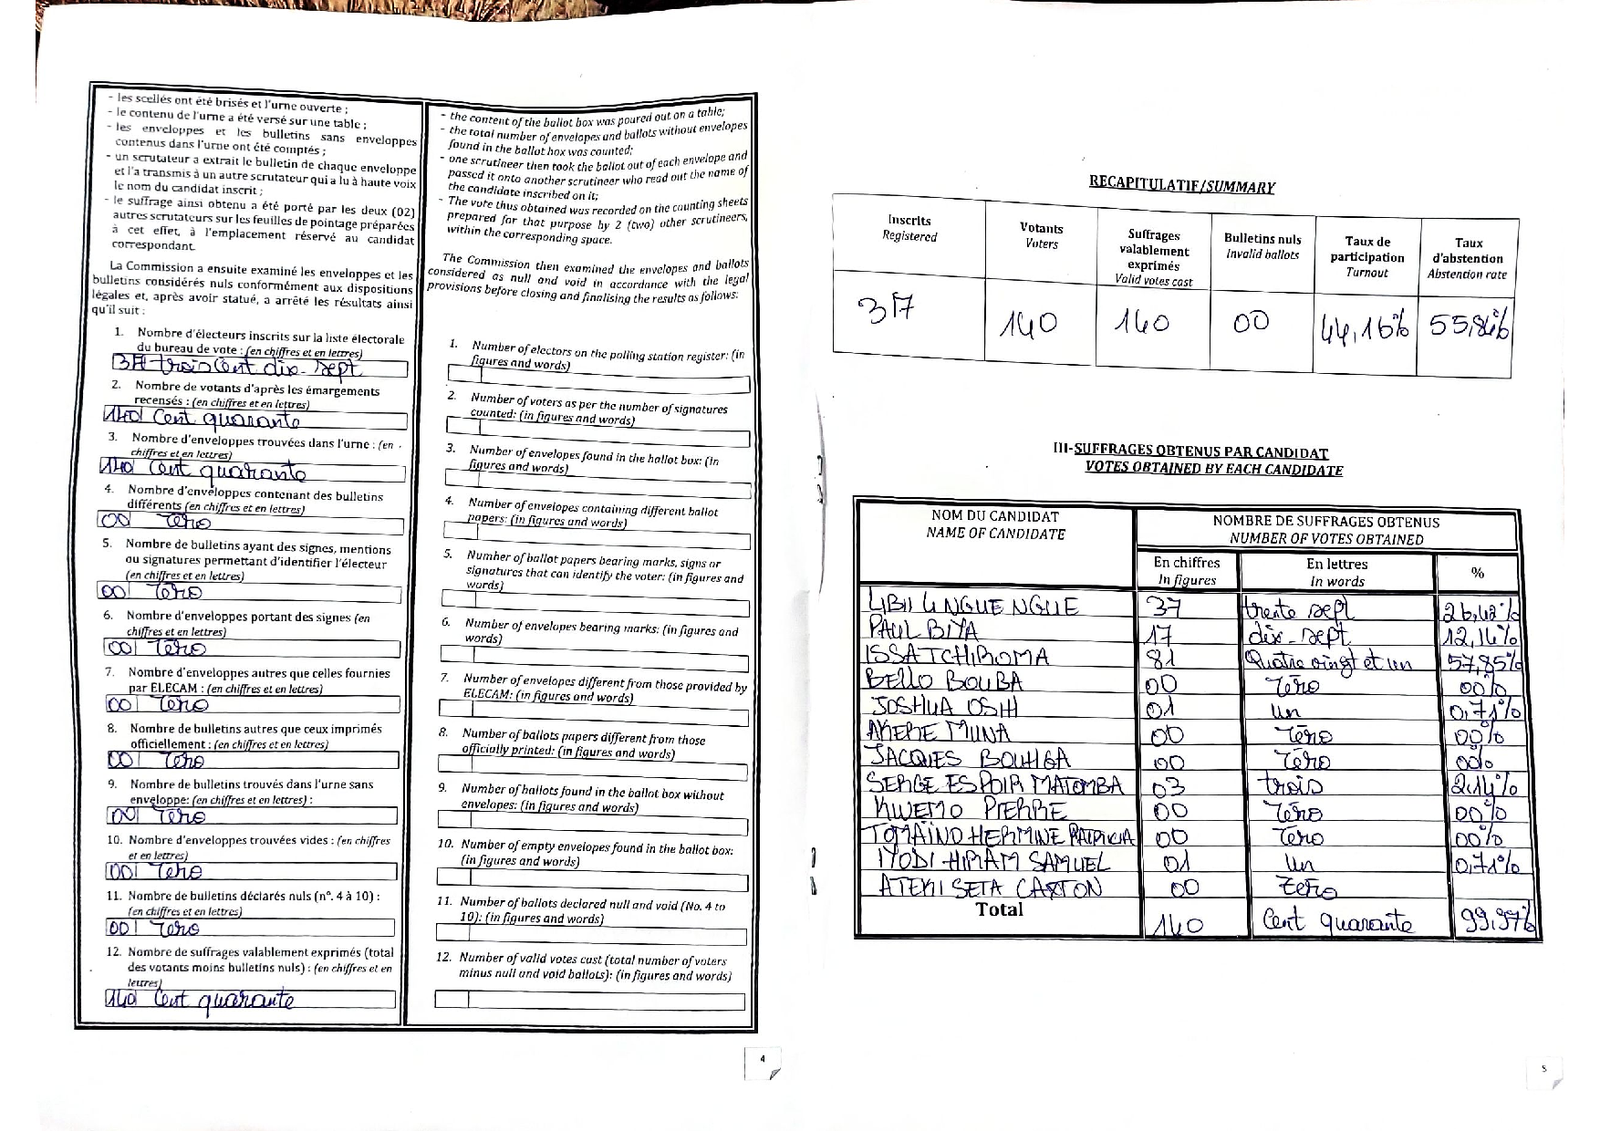 - les scellés ont été brisés et l'urne ouverte ;
- le contenu de l'urne a été versé sur une table ;
- les enveloppes et les bulletins sans enveloppes
contenus dans l'urne ont été comptés ;
- un scrutateur a extrait le bulletin de chaque enveloppe
et l'a transmis à un autre scrutateur qui a lu à haute voix
le nom du candidat inscrit ;
- le suffrage ainsi obtenu a été porté par les deux (02)
autres scrutateurs sur les feuilles de pointage préparées
à cet effet, à l'emplacement réservé au candidat
correspondant.
La Commission a ensuite examiné les enveloppes et les
bulletins considérés nuls conformément aux dispositions
légales et, après avoir statué, a arrêté les résultats ainsi
qu'il suit :
1. Nombre d'électeurs inscrits sur la liste électorale
du bureau de vote : (en chiffres et en lettres)
317 trois cent dix-sept
2. Nombre de votants d'après les émargements
recensés : (en chiffres et en lettres)
140 Cent quarante
3. Nombre d'enveloppes trouvées dans l'urne : (en
chiffres et en lettres)
140 Cent quarante
4. Nombre d'enveloppes contenant des bulletins
différents (en chiffres et en lettres)
00 Zéro
5. Nombre de bulletins ayant des signes, mentions
ou signatures permettant d'identifier l'électeur
(en chiffres et en lettres)
00 Zéro
6. Nombre d'enveloppes portant des signes (en
chiffres et en lettres)
00 Zéro
7. Nombre d'enveloppes autres que celles fournies
par ELECAM : (en chiffres et en lettres)
00 Zéro
8. Nombre de bulletins autres que ceux imprimés
officiellement : (en chiffres et en lettres)
00 Zéro
9. Nombre de bulletins trouvés dans l'urne sans
enveloppe: (en chiffres et en lettres) :
00 Zéro
10. Nombre d'enveloppes trouvées vides : (en chiffres
et en lettres)
00 Zéro
11. Nombre de bulletins déclarés nuls (n°. 4 à 10) :
(en chiffres et en lettres)
00 Zéro
12. Nombre de suffrages valablement exprimés (total
des votants moins bulletins nuls) : (en chiffres et en
lettres)
140 Cent quarante
- the content of the ballot box was poured out on a table;
- the total number of envelopes and ballots without envelopes
found in the ballot box was counted;
- one scrutineer then took the ballot out of each envelope and
passed it onto another scrutineer who read out the name of
the candidate inscribed on it;
- The vote thus obtained was recorded on the counting sheets
prepared for that purpose by 2 (two) other scrutineers,
within the corresponding space.
The Commission then examined the envelopes and ballots
considered as null and void in accordance with the legal
provisions before closing and finalising the results as follows:
1. Number of electors on the polling station register: (in
figures and words)
2. Number of voters as per the number of signatures
counted: (in figures and words)
3. Number of envelopes found in the ballot box: (in
figures and words)
4. Number of envelopes containing different ballot
papers: (in figures and words)
5. Number of ballot papers bearing marks, signs or
signatures that can identify the voter: (in figures and
words)
6. Number of envelopes bearing marks: (in figures and
words)
7. Number of envelopes different from those provided by
ELECAM: (in figures and words)
8. Number of ballots papers different from those
officially printed: (in figures and words)
9. Number of ballots found in the ballot box without
envelopes: (in figures and words)
10. Number of empty envelopes found in the ballot box:
(in figures and words)
11. Number of ballots declared null and void (No. 4 to
10): (in figures and words)
12. Number of valid votes cast (total number of voters
minus null and void ballots): (in figures and words)
4
RECAPITULATIF/SUMMARY
Inscrits Registered
Votants Voters
Suffrages valablement exprimés Valid votes cast
Bulletins nuls Invalid ballots
Taux de participation Turnout
Taux d'abstention Abstention rate
317 140 140 00 44,16% 55,84%
III-SUFFRAGES OBTENUS PAR CANDIDAT
VOTES OBTAINED BY EACH CANDIDATE
NOM DU CANDIDAT
NAME OF CANDIDATE
NOMBRE DE SUFFRAGES OBTENUS
NUMBER OF VOTES OBTAINED
En chiffres In figures
En lettres In words
%
LIBII LI NGUE NGUE 37 trente sept 26,42%
PAUL BIYA 17 dix-sept 12,14%
ISSA TCHIROMA 81 Quatre vingt et un 57,85%
BELLO BOUBA 00 Zéro 00%
JOSHUA OSHI 01 un 0,71%
AKERE MUNA 00 Zéro 00%
JACQUES BOUHGA 00 Zéro 00%
SERGE ESPOIR MATOMBA 03 trois 2,14%
KWEMO PIERRE 00 Zéro 00%
TOMAÏNO HERMINE PATRICIA 00 Zéro 00%
IYODI HIRAM SAMUEL 01 un 0,71%
ATEKI SETA CAXTON 00 Zéro
Total 140 Cent quarante 99,97%
5